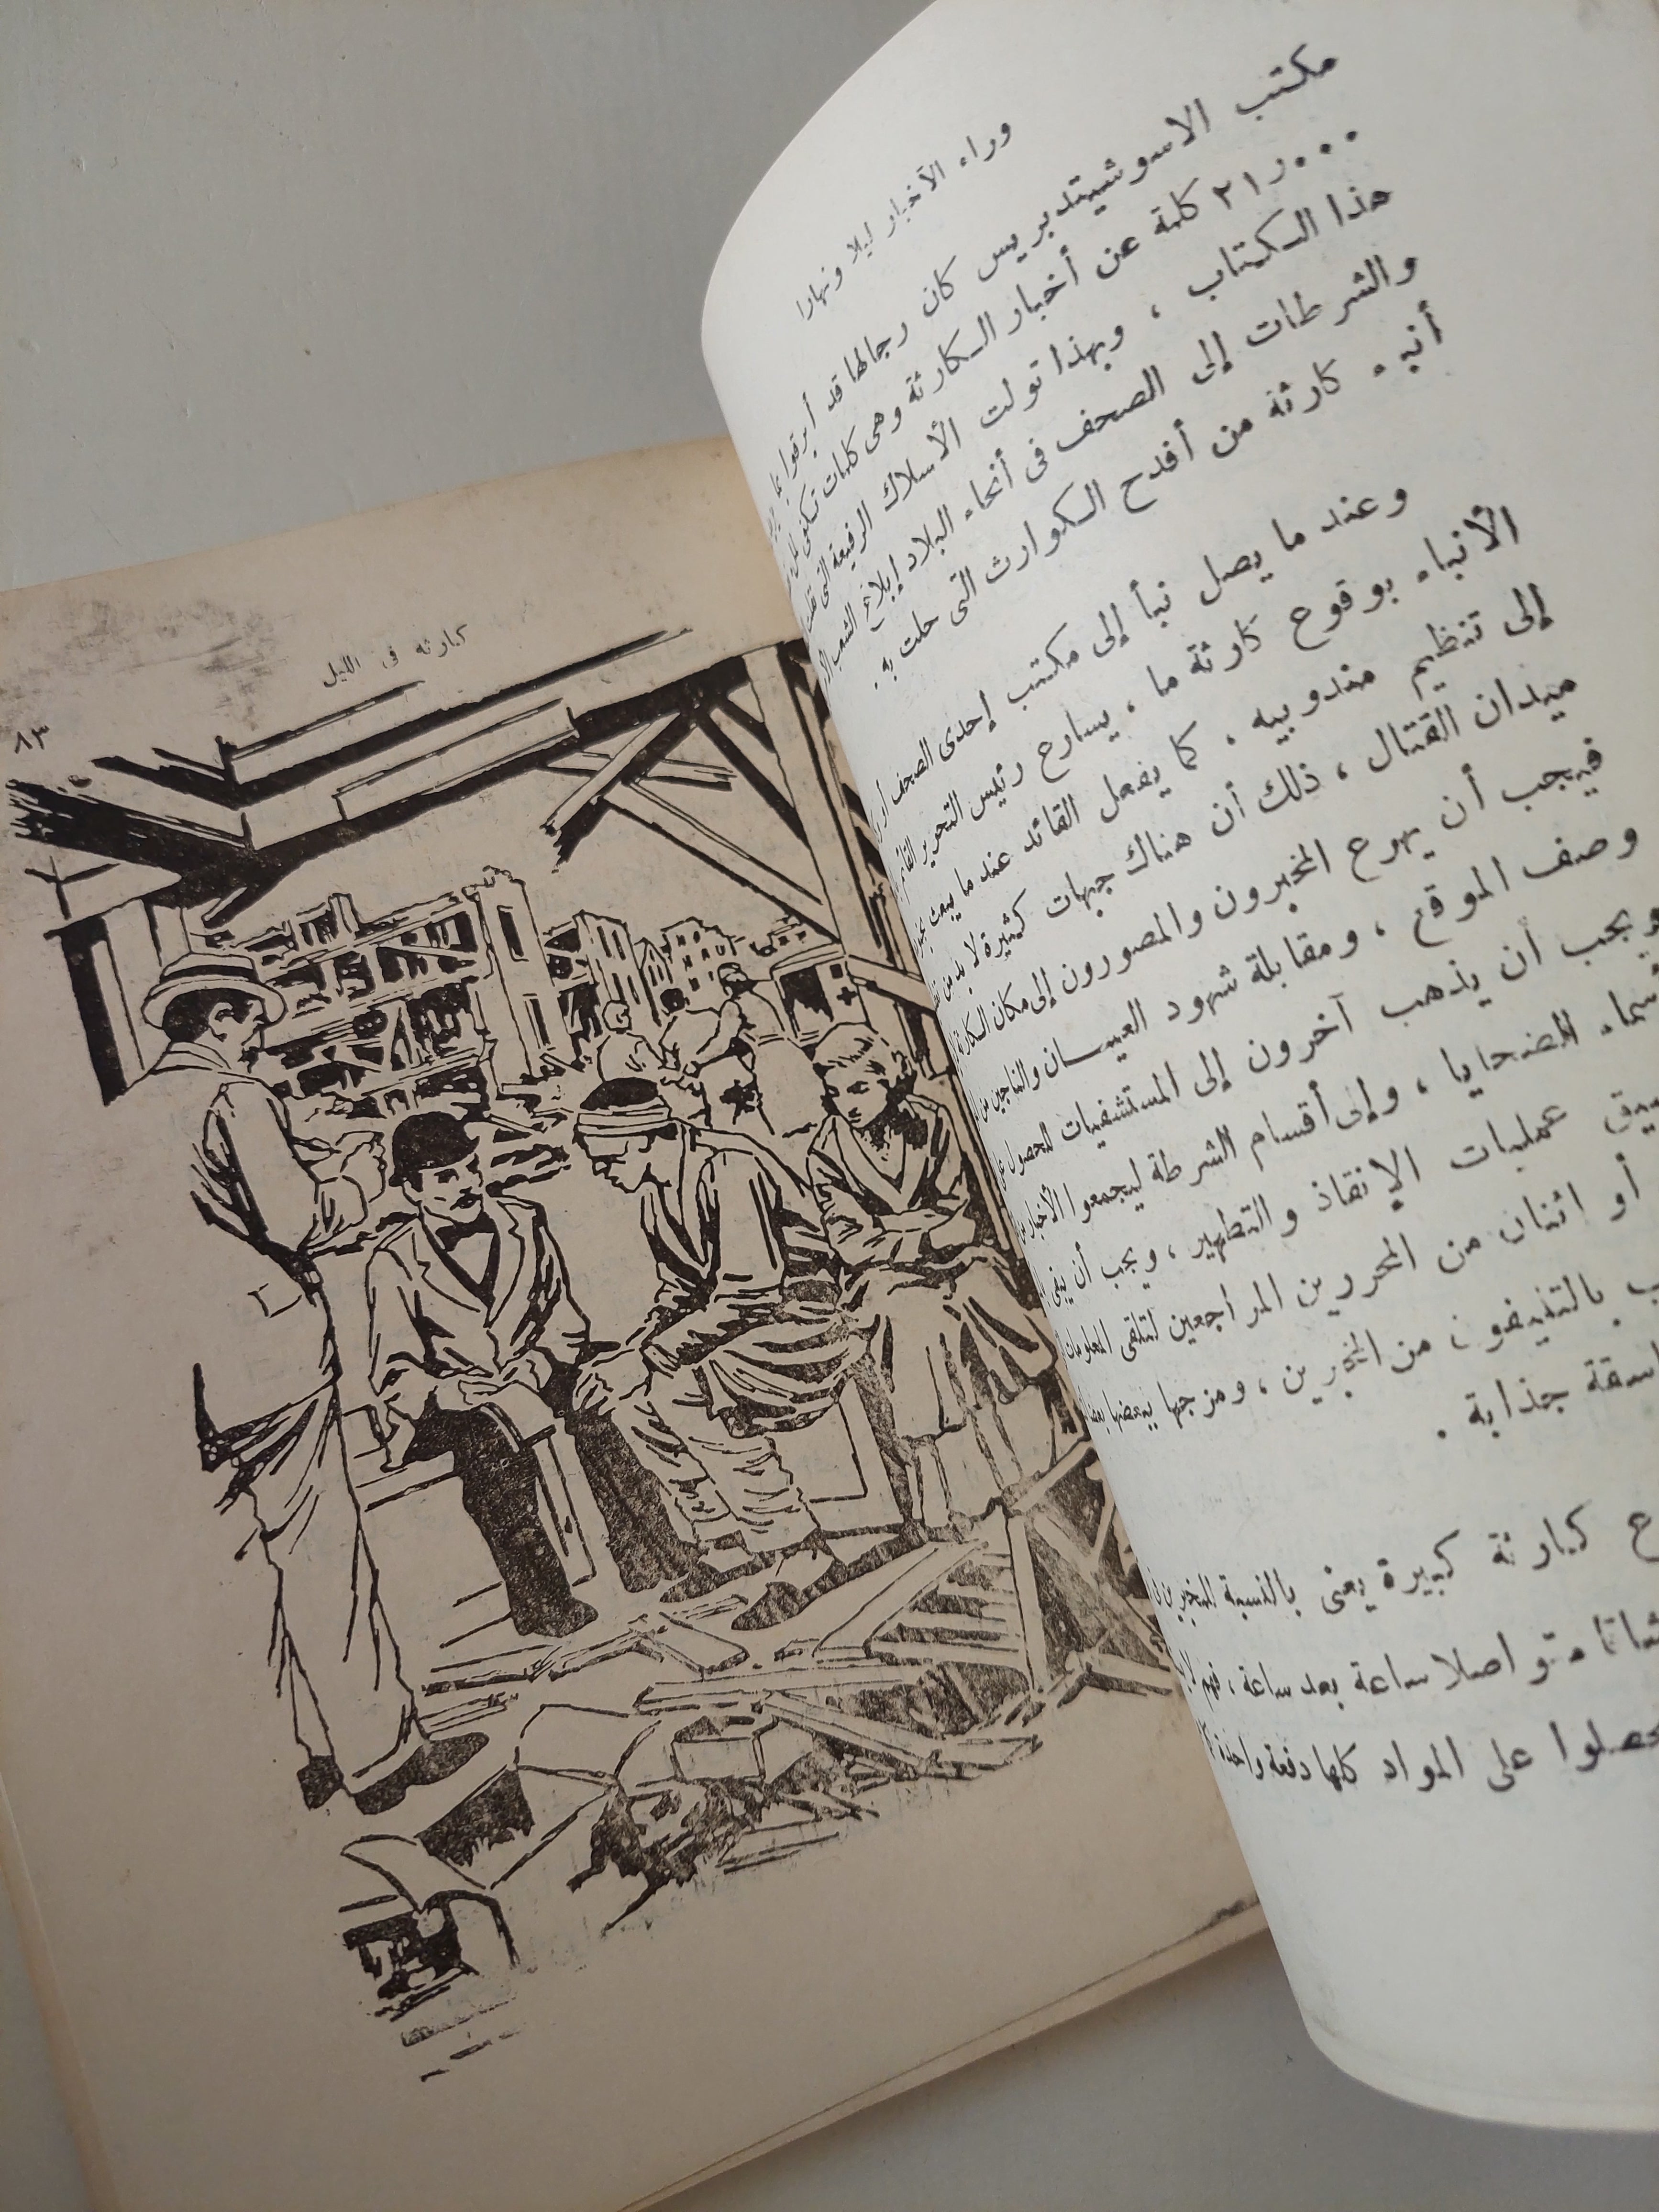 وراء الأخبار ليلا ونهارا
مكتب الاسوشيتدبريس كان رجالها قد أبرقوا بما
٢١٫٠٠٠ كلمة عن أخبار الكارثة وهى كلمات تكفى
هذا الكتاب ، وبهذا تولت الأسلاك الرفيعة التى
والشرطات إلى الصحف فى أنحاء البلاد إبلاغ الشعب
أنباء كارثة من أفدح الكوارث التى حلت به .
وعند ما يصل نبأ إلى مكتب إحدى الصحف أو
الأنباء بوقوع كارثة ما ، يسارع رئيس التحرير
إلى تنظيم مندوبيه ، كما يفعل القائد عند ما يبعث
ميدان القتال ، ذلك أن هناك جبهات كثيرة لا بد من
فيجب أن يهرع المخبرون والمصورون إلى مكان الكارثة
وصف الموقع ، ومقابلة شهود العيان والناجين من
ويجب أن يذهب آخرون إلى المستشفيات للحصول على
الضحايا ، وإلى أقسام الشرطة ليجمعوا الأخبار
عمليات الإنقاذ والتطهير ، ويجب أن يبقى
أو اثنان من المحررين المراجعين لتلقى المعلومات
بالتليفون من المخبرين ، ومزجها ببعضها
جذابة .
كارثة كبيرة يعنى بالنسبة للمخبرين
متواصلا ساعة بعد ساعة ، فهم
على المواد كلها دفعة واحدة
كارثة فى الليل
٨٣